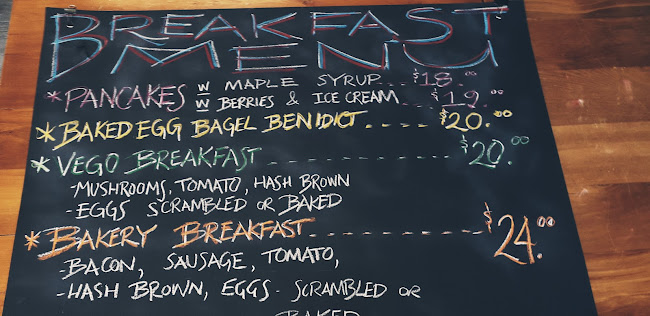 BREAKFAST
MENU
* PANCAKES W MAPLE SYRUP... $18.00
W BERRIES & ICE CREAM... $19.00
* BAKED EGG BAGEL BENIDICT.... $20.00
* VEGO BREAKFAST - - - - - - - - - $20.00
- MUSHROOMS, TOMATO, HASH BROWN
- EGGS SCRAMBLED OR BAKED
* BAKERY BREAKFAST - - - - - - - - - $24.00
- BACON, SAUSAGE, TOMATO,
- HASH BROWN, EGGS - SCRAMBLED OR
BAKED